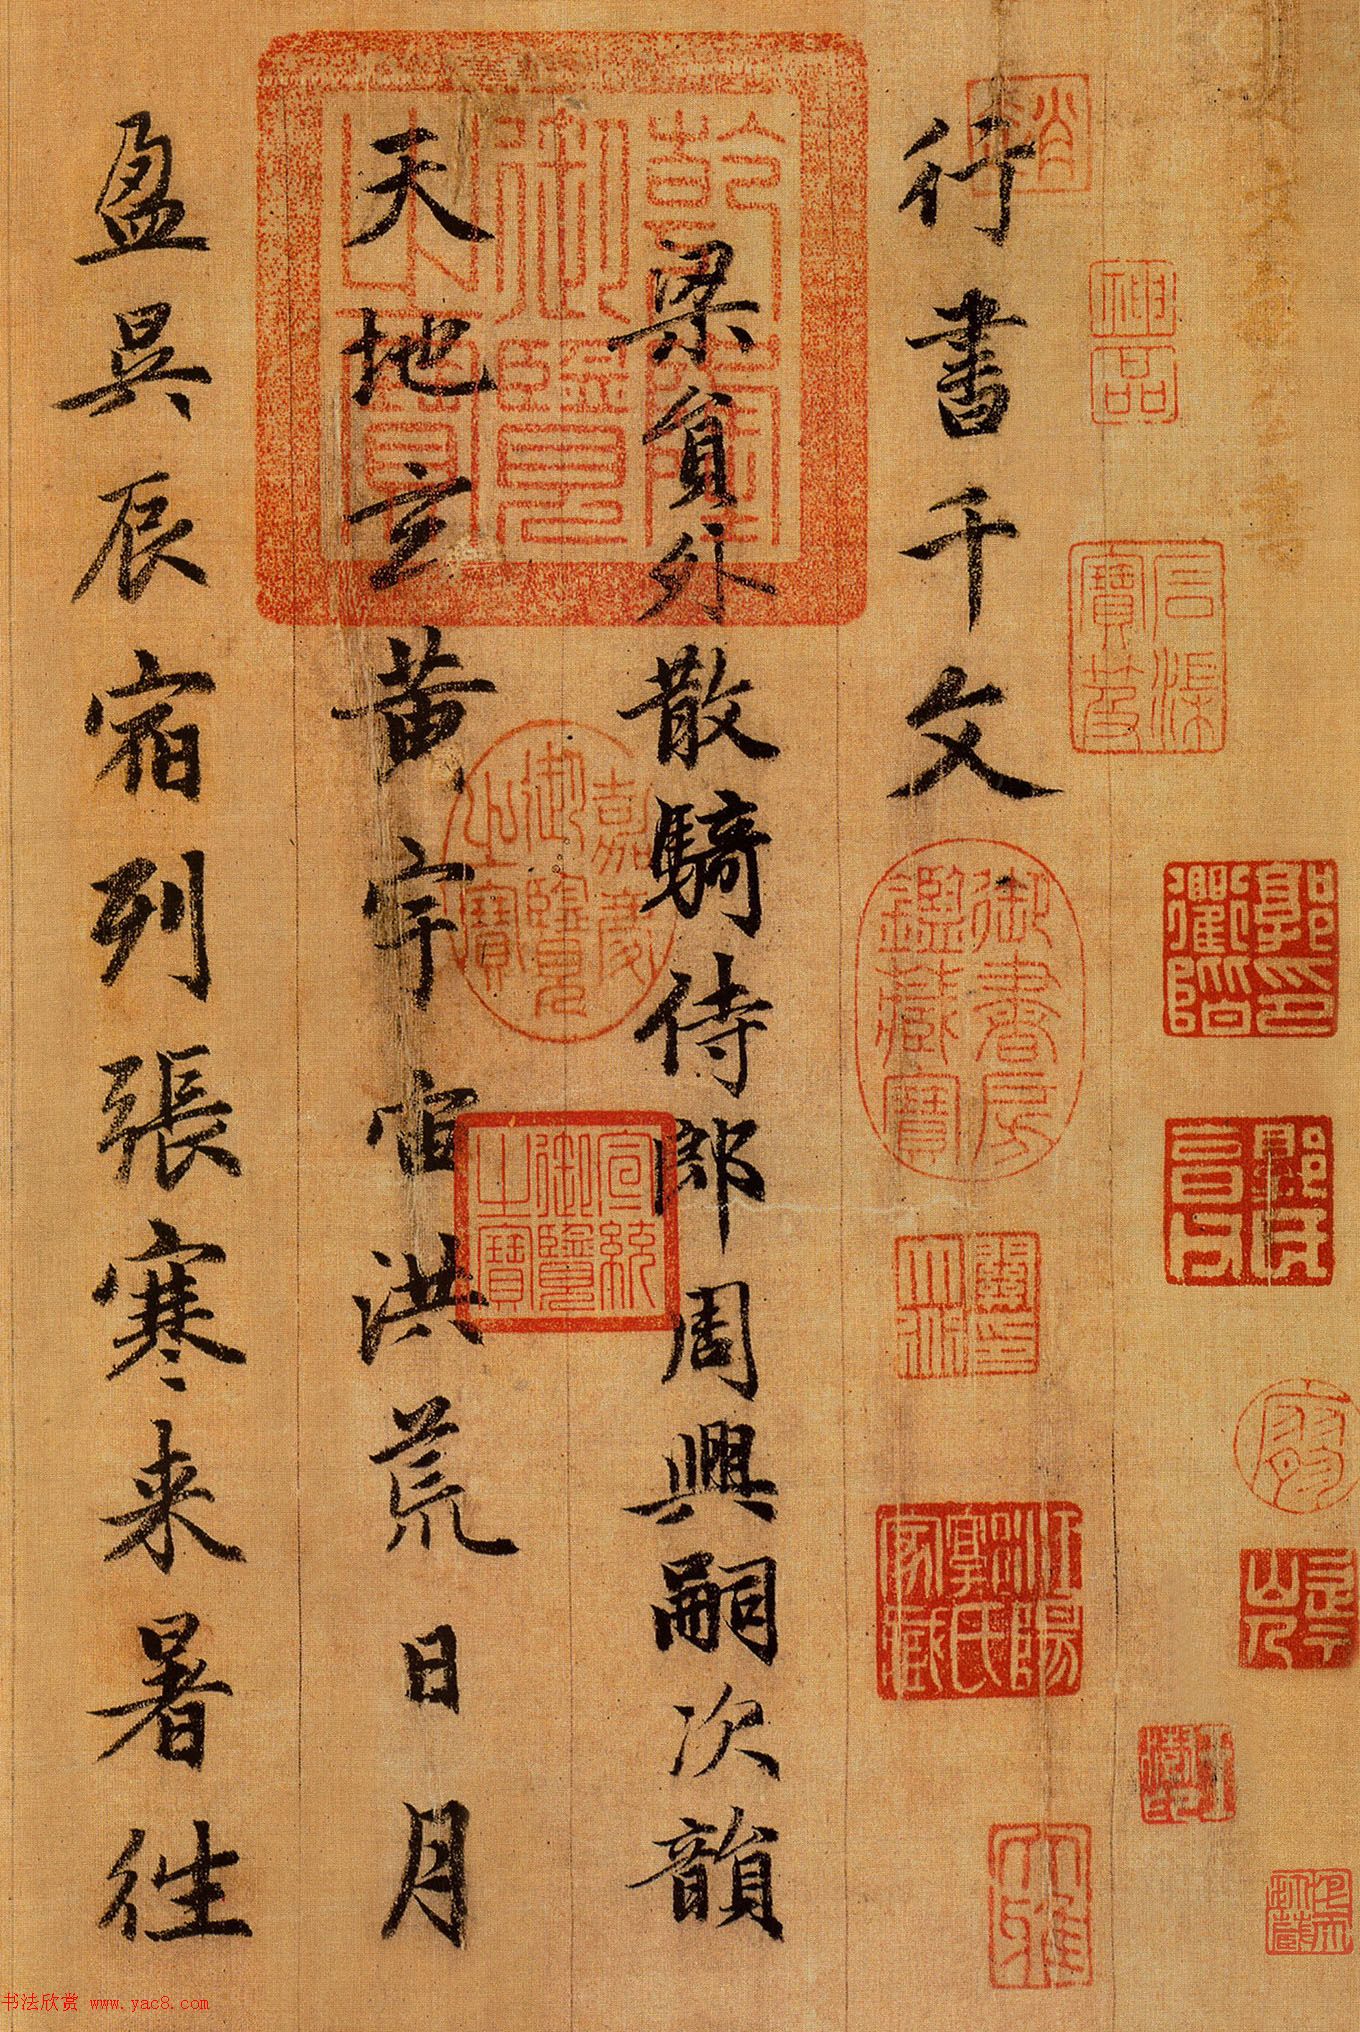 行書千文
梁負外散騎侍郎周興嗣次韻
天地玄黃宇宙洪荒日月
盈昃辰宿列張寒来暑往
乾隆御覽之寶
嘉慶御覽之寶
宣統御覽之寶
神品
石渠寶笈
御書房鑑藏寶
大雅
书法欣赏 www.yac8.com